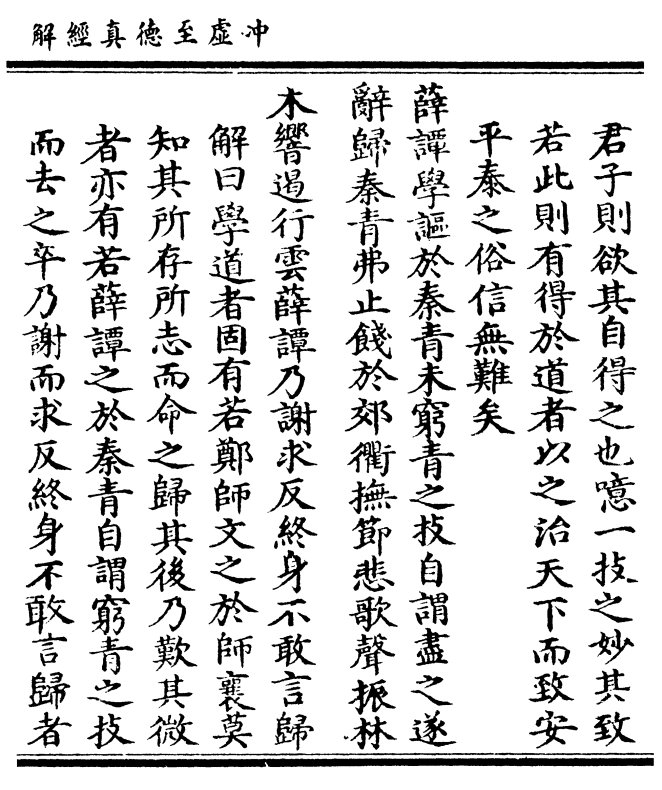 冲虛至德真經解
君子則欲其自得之也噫一技之妙其致
若此則有得於道者以之治天下而致安
平泰之俗信無難矣
薛譚學謳於秦青未窮青之技自謂盡之遂
辭歸秦青弗止餞於郊衢撫節悲歌聲振林
木響遏行雲薛譚乃謝求反終身不敢言歸
解曰學道者固有若鄭師文之於師襄莫
知其所存所志而命之歸其後乃歎其微
者亦有若薛譚之於秦青自謂窮青之技
而去之卒乃謝而求反終身不敢言歸者